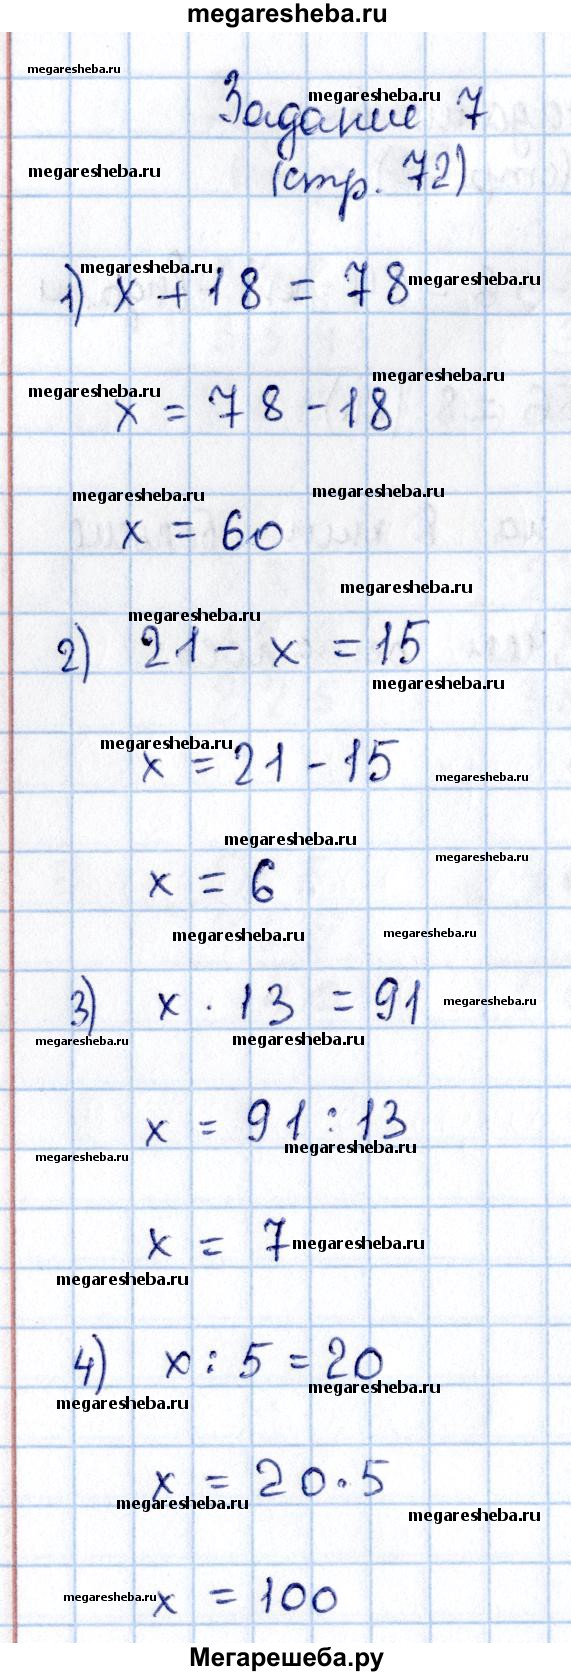 megaresheba.ru
megaresheba.ru
Задание 7
megaresheba.ru
megaresheba.ru
(стр. 72)
megaresheba.ru
megaresheba.ru
1) x + 18 = 78
megaresheba.ru
megaresheba.ru
x = 78 - 18
megaresheba.ru
megaresheba.ru
x = 60
megaresheba.ru
megaresheba.ru
2) 21 - x = 15
megaresheba.ru
megaresheba.ru
x = 21 - 15
megaresheba.ru
megaresheba.ru
megaresheba.ru
x = 6
megaresheba.ru
megaresheba.ru
3) x · 13 = 91
megaresheba.ru
megaresheba.ru
megaresheba.ru
x = 91 : 13
megaresheba.ru
megaresheba.ru
x = 7
megaresheba.ru
megaresheba.ru
4) x : 5 = 20
megaresheba.ru
megaresheba.ru
x = 20 · 5
megaresheba.ru
megaresheba.ru
megaresheba.ru
x = 100
Мегарешеба.ру